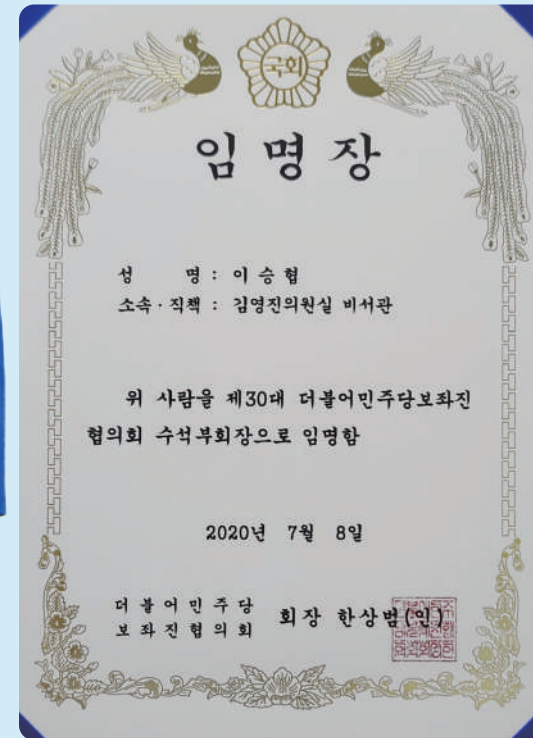 국회
임명장
성 명 : 이승협
소속·직책 : 김영진의원실 비서관
위 사람을 제30대 더불어민주당보좌진
협의회 수석부회장으로 임명함
2020년 7월 8일
더불어민주당
보좌진협의회 회장 한상범(인)